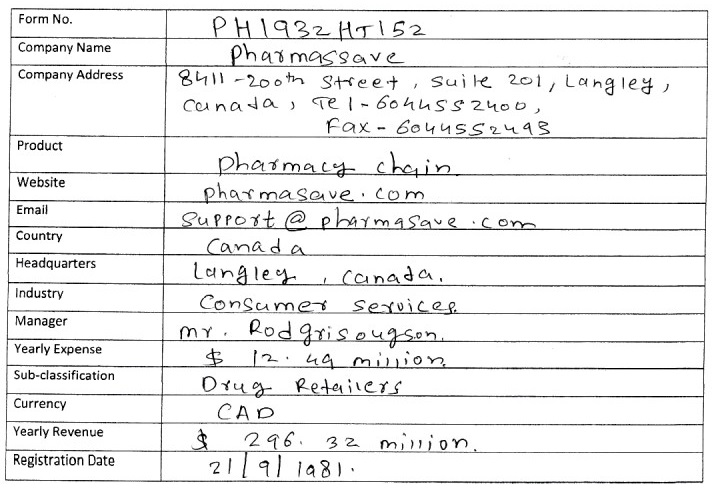 Form No. PH1932HT152
Company Name Pharmassave
Company Address 8411-200th Street, Suite 201, Langley,
Canada, Tel-6044552400,
Fax-6044552493
Product Pharmacy chain
Website pharmasave.com
Email support@pharmasave.com
Country Canada
Headquarters Langley, Canada.
Industry Consumer services.
Manager mr. Rodgrisougson.
Yearly Expense $ 12.49 million.
Sub-classification Drug Retailers
Currency CAD
Yearly Revenue $ 296.32 million.
Registration Date 21/9/1981.